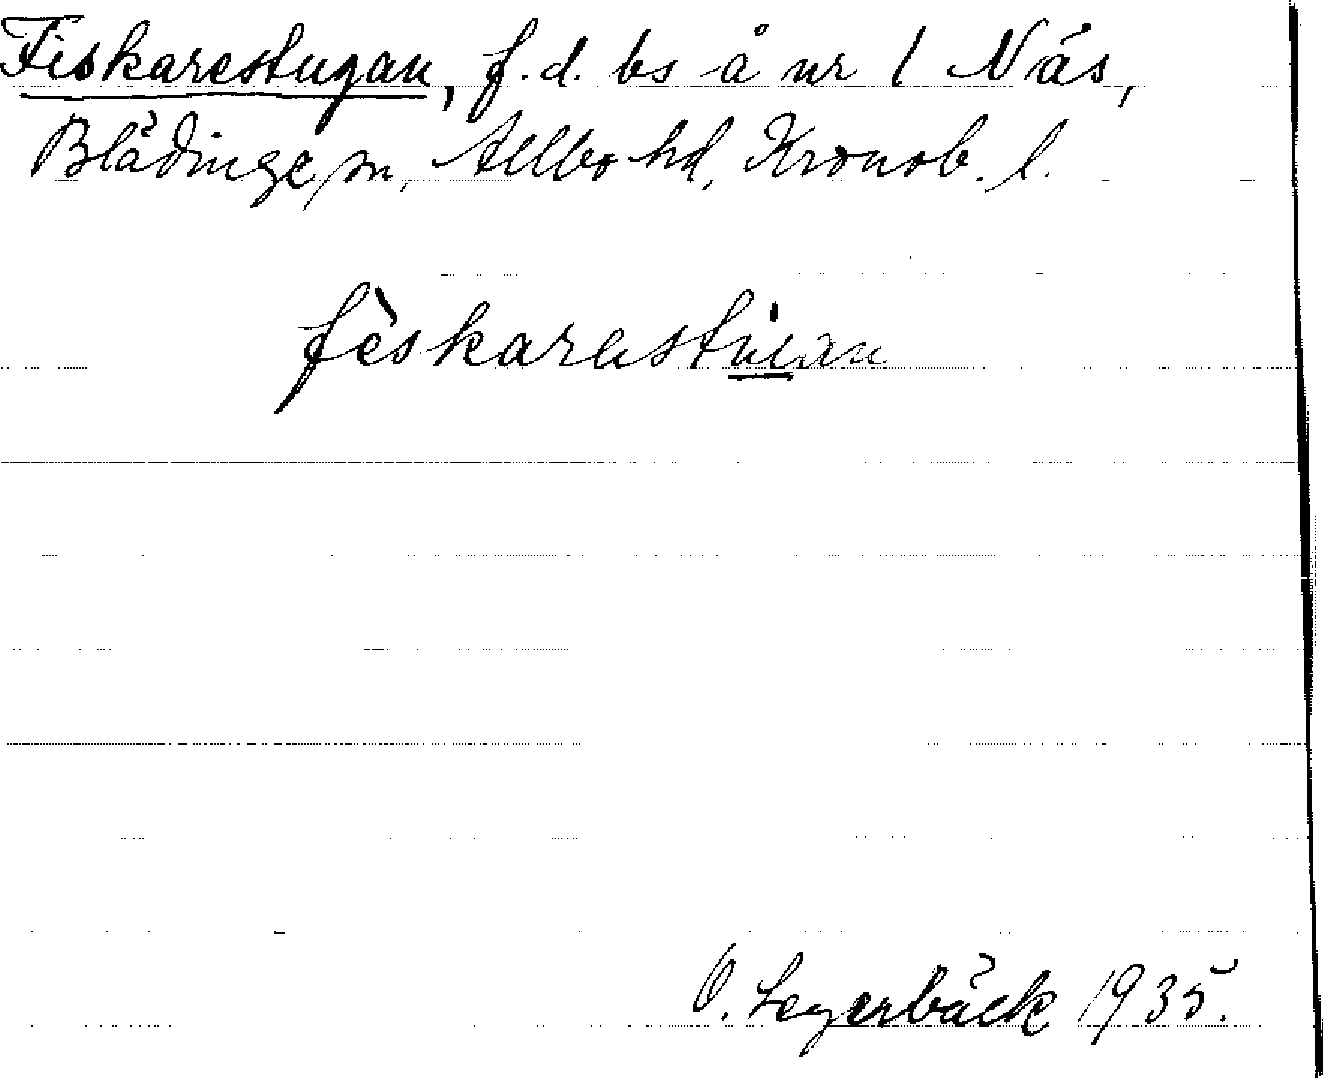 Fiskarestugan, f.d. bs å nr 1 Näs,
Blädinge sn, Allbo hd, Kronob. l.
fiskarestúan
O. Legerbäck 1935.